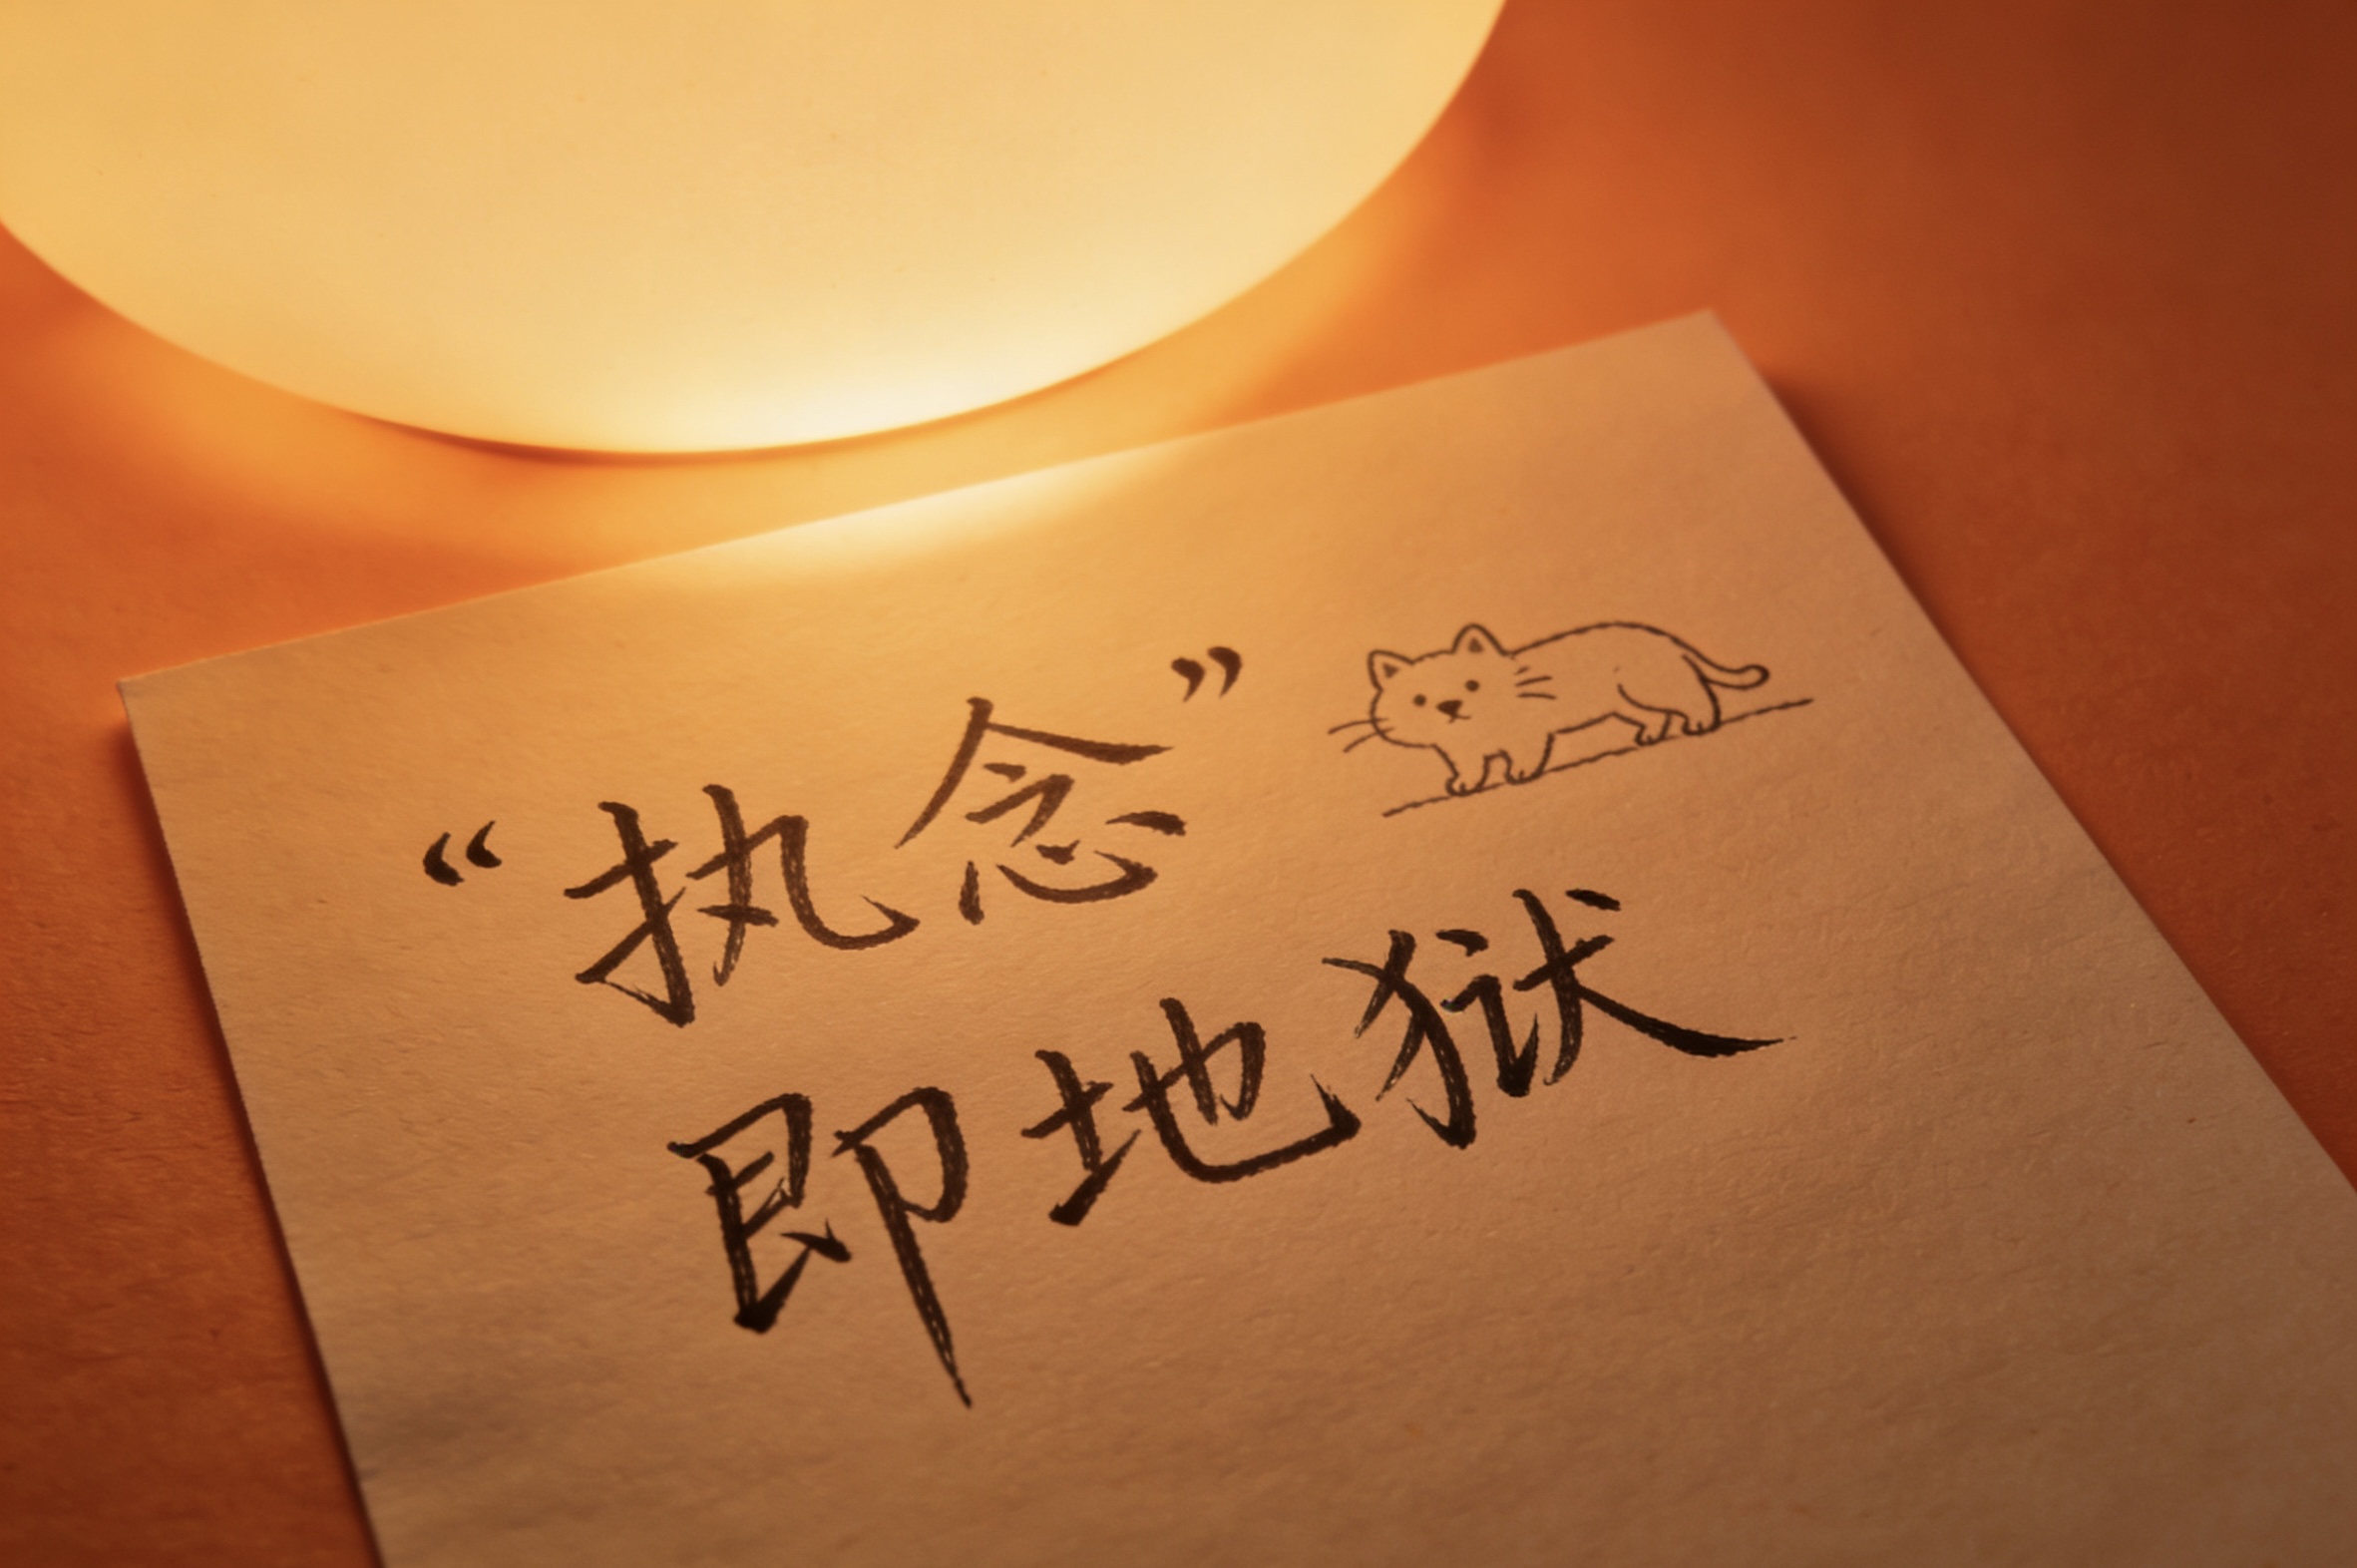 “执念”
即地狱